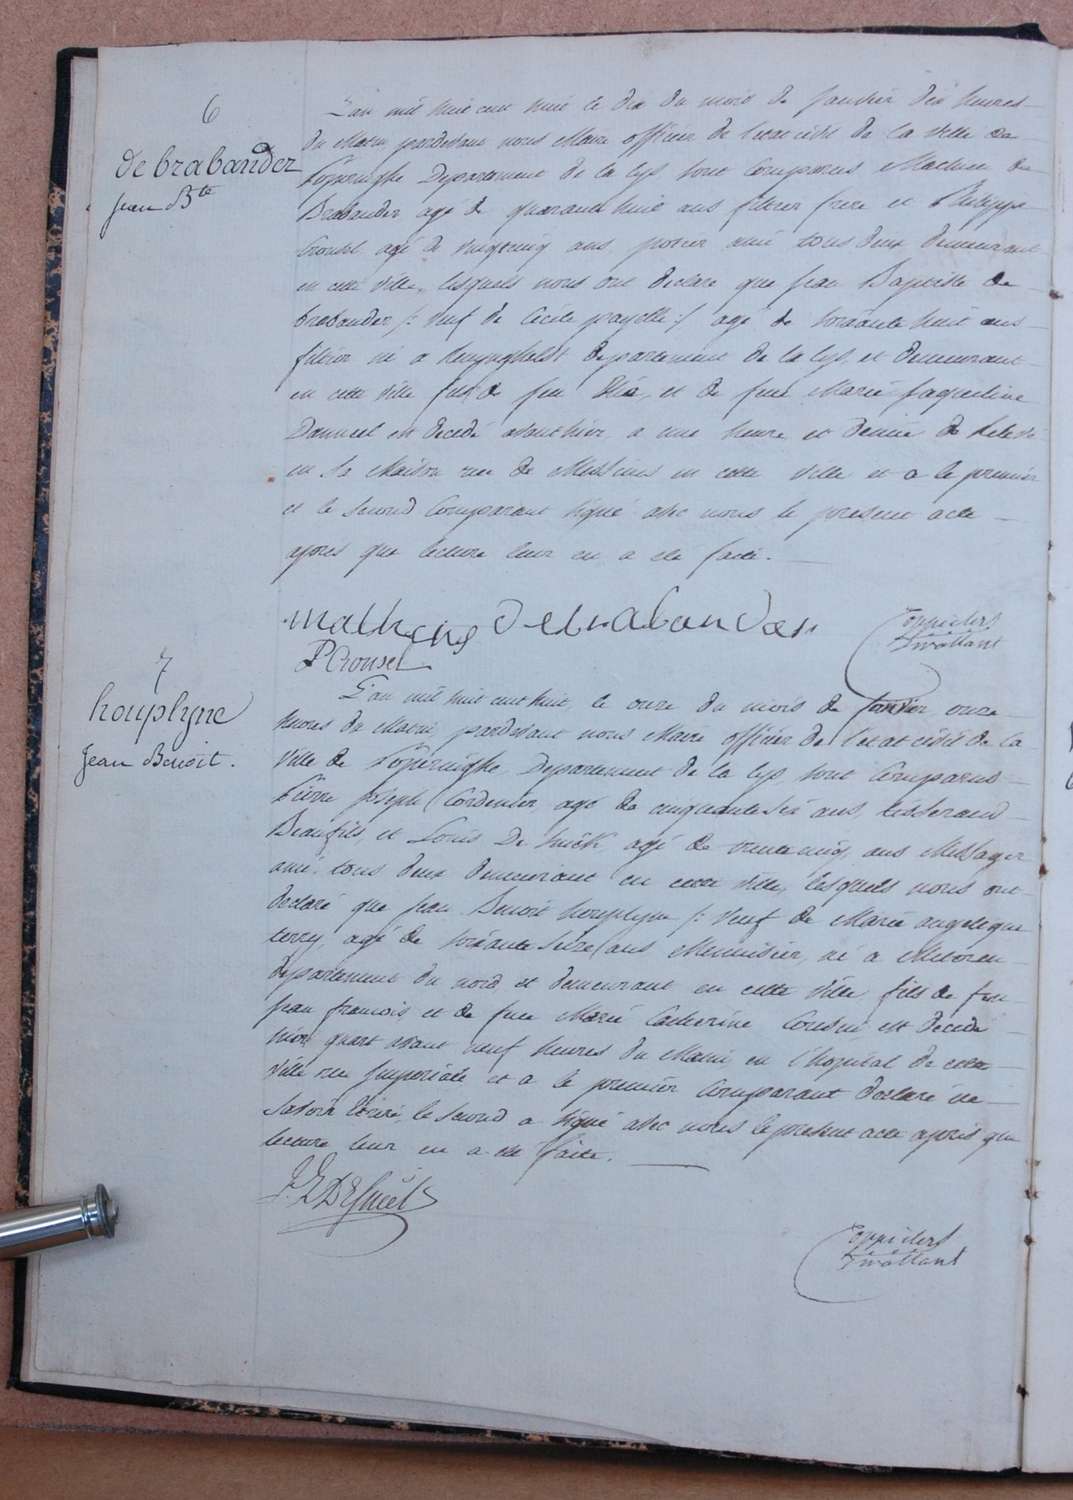 6
de brabander
Jean Bte
L'an mil huit cent huit le dix du mois de Janvier dix heures
du Matin pardevant nous Maire officier de l'etat civil de la ville de
Poperinghe Departement de la Lys, sont Comparus Mathieu de
Brabander agé de quarante huit ans filtier frere et Philippe
Crousel agé de vingtcinq ans, potier ami tous deux demeurant
en cette ville, lesquels nous ont declaré que Jean Baptiste de
brabander /: veuf de Cécile payelle :/ agé de soixante huit ans
filtier né a departement de la Lys et demeurant
en cette ville fils de feu et de feue Marie Jaqueline
est decedé avant hier a une heure et demie de
en sa Maison rue de Messines en cette ville et a le premier
et le second Comparant signé avec nous le present acte
apres que lecture leur en a été faite.
Matheus Debrabander
P Crousel
7
houplyne
Jean Benoit.
L'an mil huit cent huit, le onze du mois de Janvier onze
heures du Matin pardevant nous Maire officier de l'etat civil de la
ville de Poperinghe Departement de la Lys sont Comparus
Pierre Joseph Cordenier, agé de cinquante six ans, tisserand
Beaufils, et Louis agé de trente cinq ans Messager
ami, tous deux demeurant en cette ville, lesquels nous ont
declaré que Jean Benoit houplyne /: veuf de Marie angelique
terry, agé de soixante seize ans Menuisier, né a Meteren
departement du nord et demeurant en cette ville, fils de feu
Jean francois et de feue Marie Catherine est decedé
hier quart avant neuf heures du Matin en l'hopital de cette
ville rue Imperiale et a le premier Comparant declaré ne
savoir ecrire, le second a signé avec nous le present acte apres que
lecture leur en a été faite.